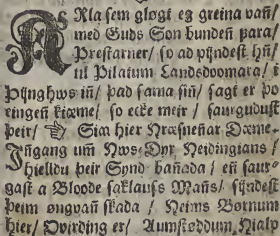 ARla sem gløgt eg greina vañ/
med Guds Son bunden þara/
Prestarner/ so ad pijndest hñ
til Pilatum Landsdoomara/ i
Pijnghws iñ/ þad sama siñ/ sagt er þo
eingeñ kiæme/ so ecke meir / saurgudust
þeir/ ☞ Siaa hier Hræsneñar Dæme.
Jñgang um Hws-Dyr Heidingians /
hielldu þeir Synd bañada / eñ saur-
gast a Bloode saklauss Mañs/ sijndest
þeim ongvañ skada / Heims Børnum
hier/ Ovirding er/ Aumstøddum Hialp